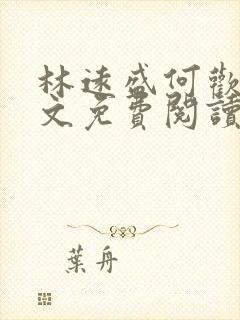 林遠盛何歡
文免費閱讀
葉舟